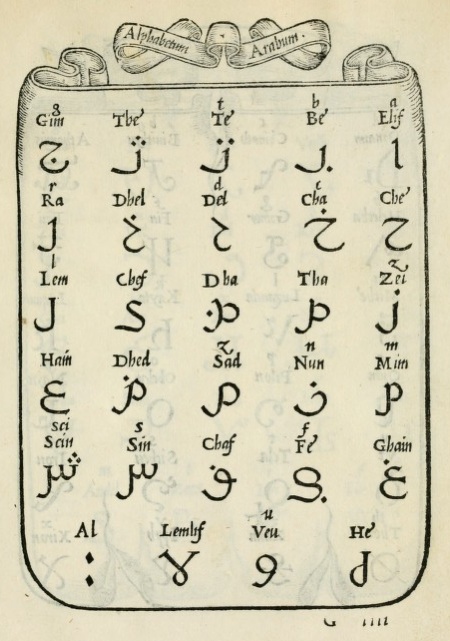 Alphabetum Arabum.
g t b a
Gim The' Te' Be' Elif
ج ث ت ب ا
r d c
Ra Dhel Del Cha Che'
ر ذ د خ ح
l z
Lem Chef Dha Tha Zei
ل ك ظ ط ز
z n m
Hain Dhed Sad Nun Mim
ع ض ص ن م
sci s f
Scin Sin Chaf Fe' Ghain
ش س ق ف غ
u
Al Lemlif Veu He'
: لا و ه
G iiii